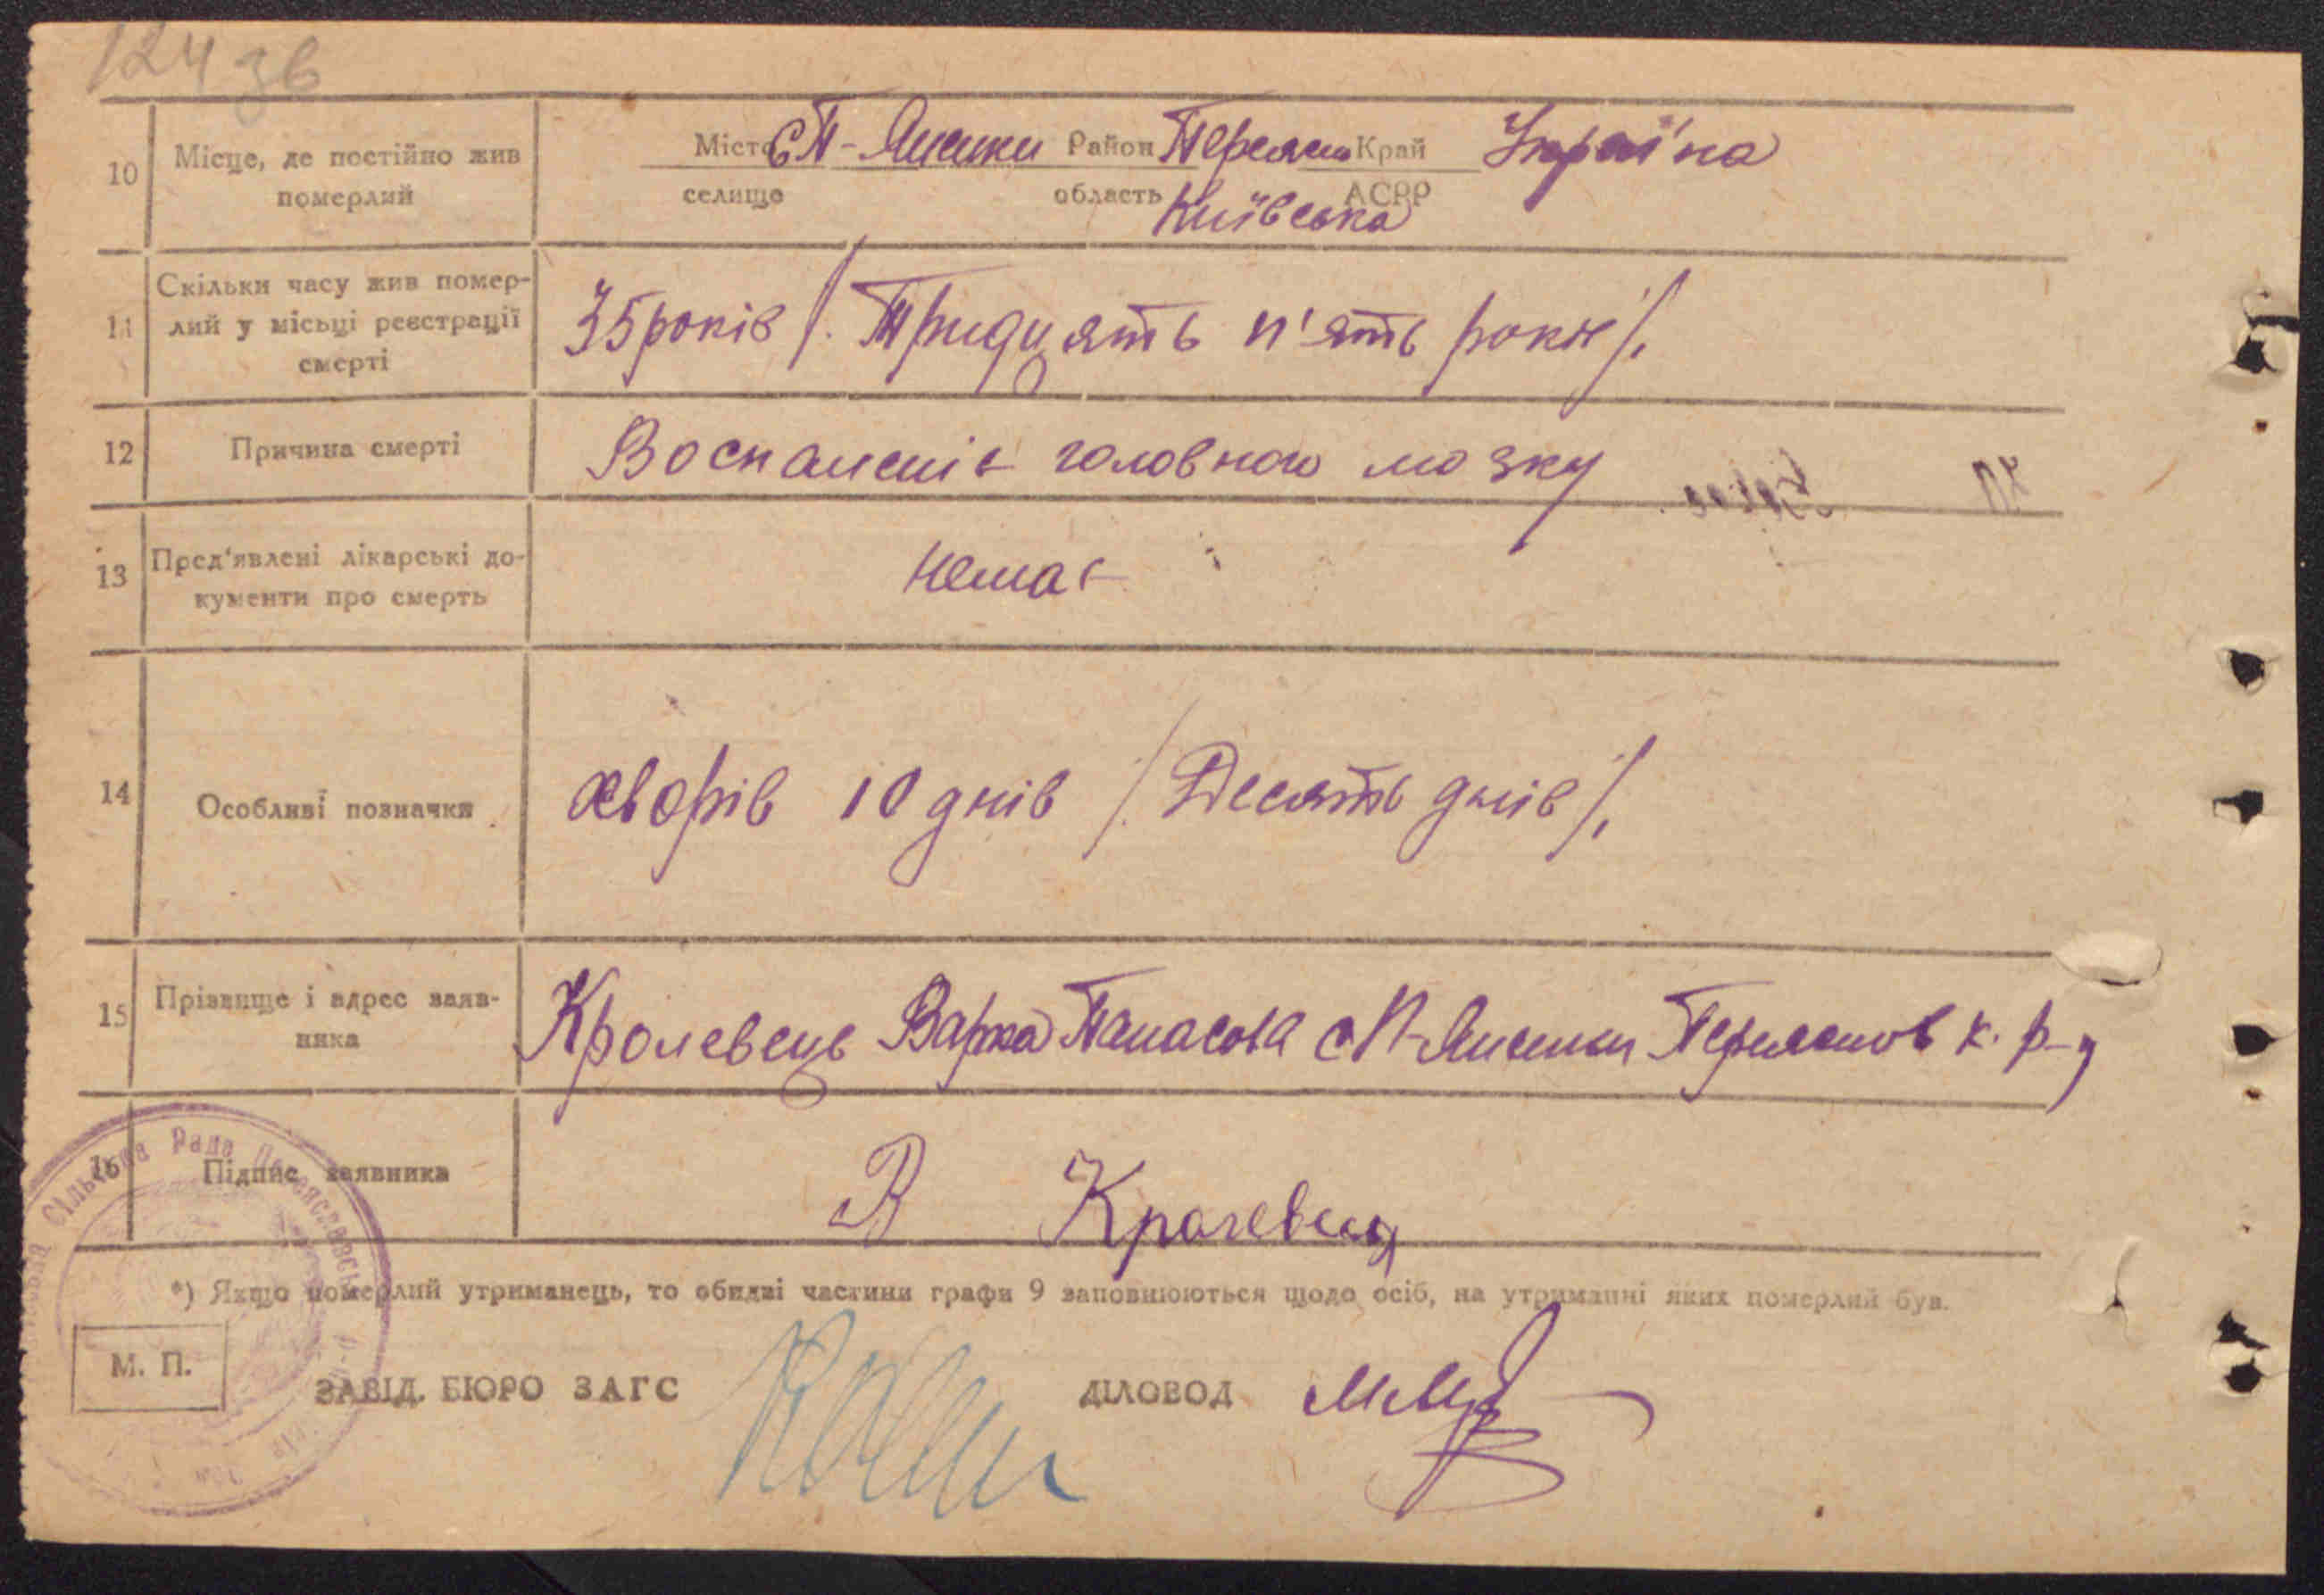 124 зв
10 Місце, де постійно жив померлий Місто С П-Лисенки Район Переясл Край Україна
селище область Київська АСРР
11 Скільки часу жив помер-
лий у місьці реєстрації
смерті
35 років /. Тридцять п'ять років /.
12 Причина смерті Воспаленіє головного мозку
13 Пред'явлені лікарські до-
кументи про смерть
немає
14 Особливі позначки хворів 10 днів /. Десять днів /.
15 Прізвище і адрес заяв-
ника
Кролевець Варка Панасова с П-Лисенки Переяслов к. р-у
16 Підпис заявника В Кралевец
*) Якщо померлий утриманець, то обидві частини графи 9 заповнюються щодо осіб, на утриманні яких померлий був.
М. П.
ЗАВІД. БЮРО ЗАГС ДІЛОВОД
Сільська Рада Переяславськ